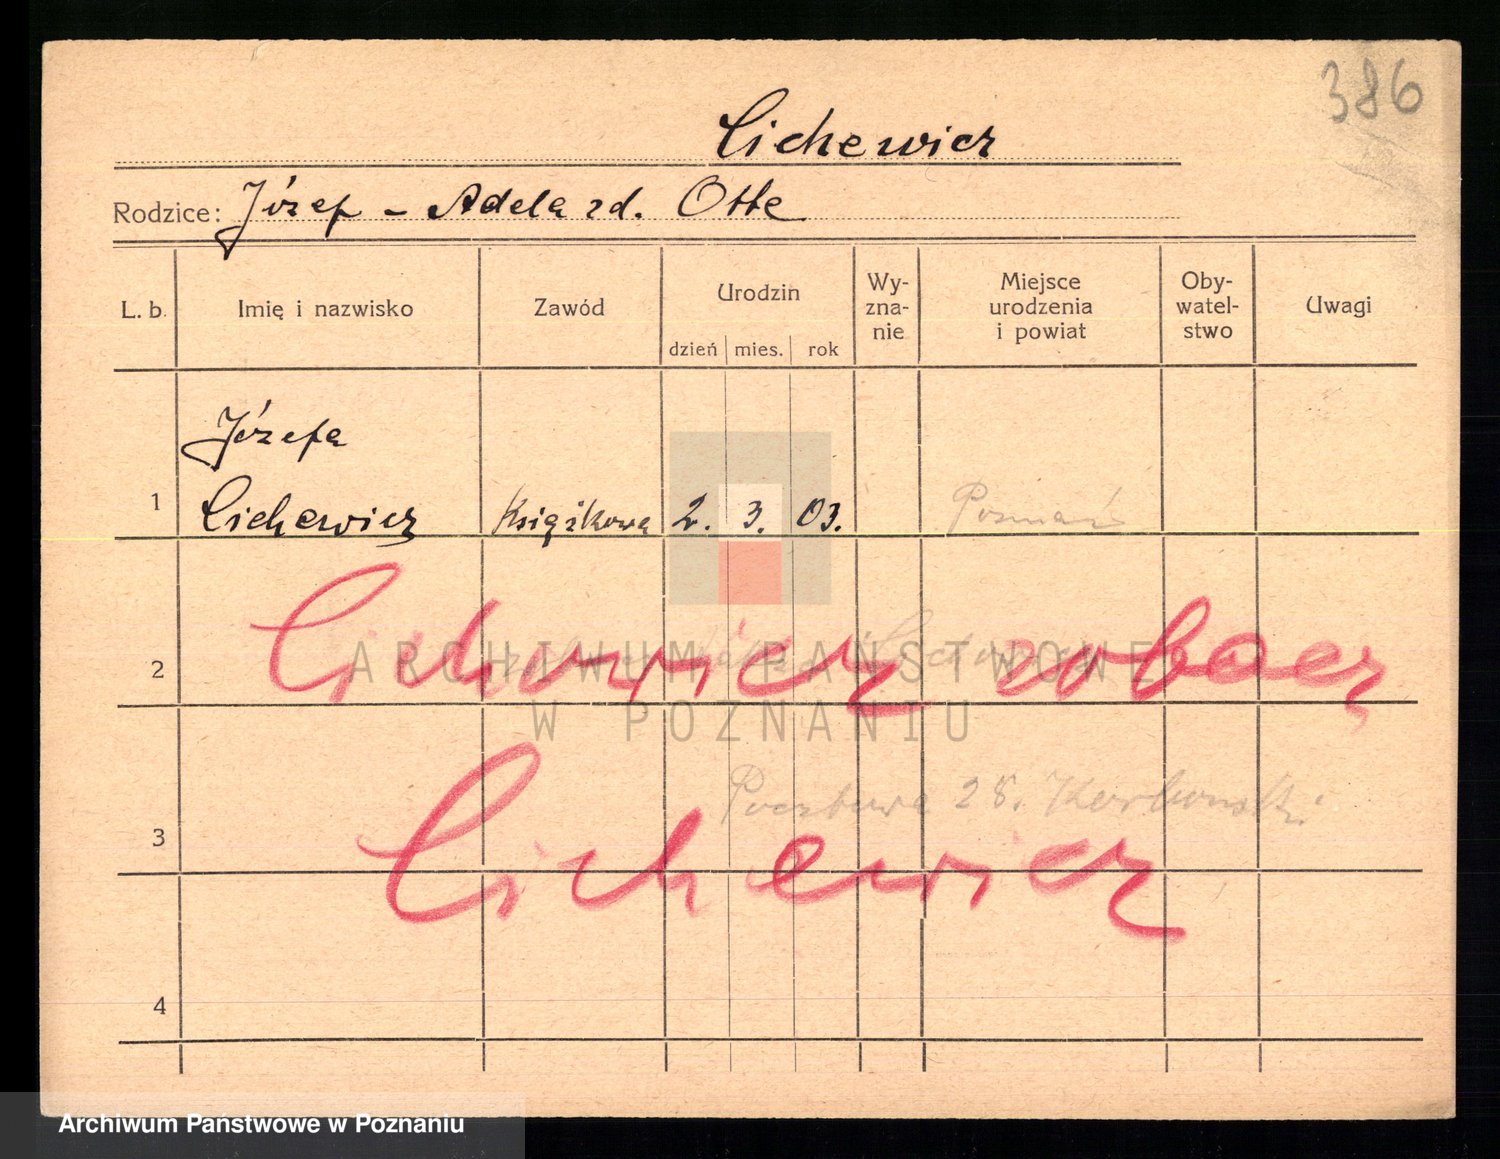 386
Cichewicz
Rodzice: Józef - Adela zd. Otte
L. b. Imię i nazwisko Zawód Urodzin Wyznanie Miejsce urodzenia i powiat Obywatelstwo Uwagi
dzień mies. rok
Józefa
1 Cichewicz Książkowa 2. 3. 03. Poznań
2 Cichowicz zobacz
ARCHIWUM PAŃSTWOWE
W POZNANIU
Pocztowa 28.
3 Cichewicz
4
Archiwum Państwowe w Poznaniu